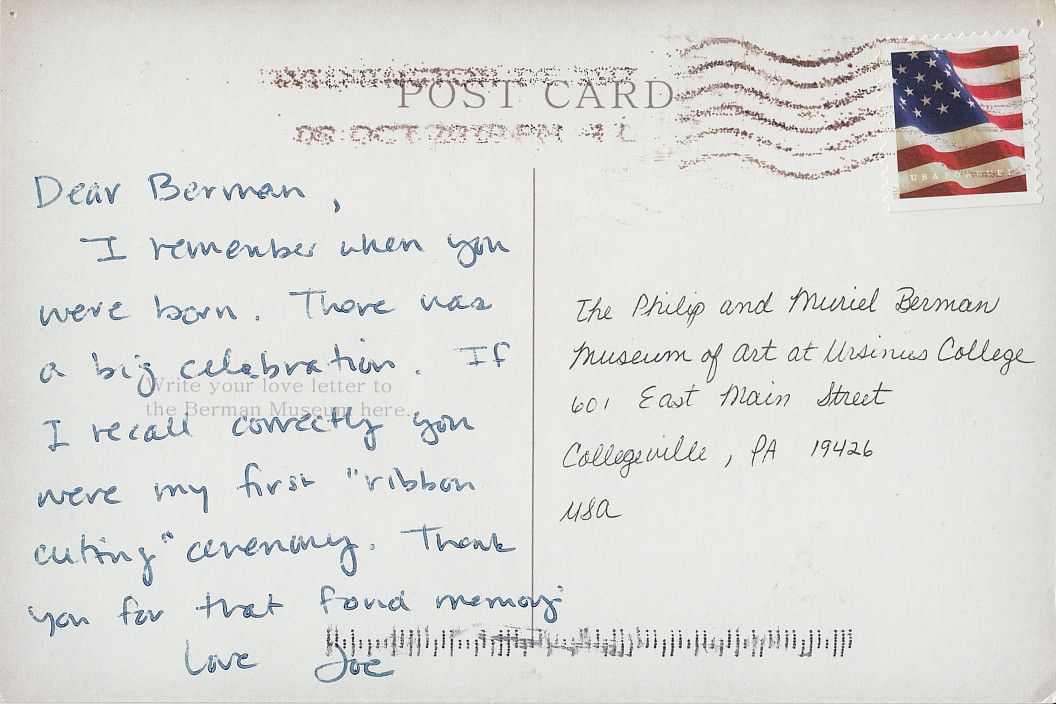 POST CARD
USA FOREVER
Dear Berman,
I remember when you
were born. There was
a big celebration. If
I recall correctly you
were my first "ribbon
cutting" ceremony. Thank
you for that fond memory.
Love Joe
Write your love letter to
the Berman Museum here.
The Philip and Muriel Berman
Museum of Art at Ursinus College
601 East Main Street
Collegeville, PA 19426
USA